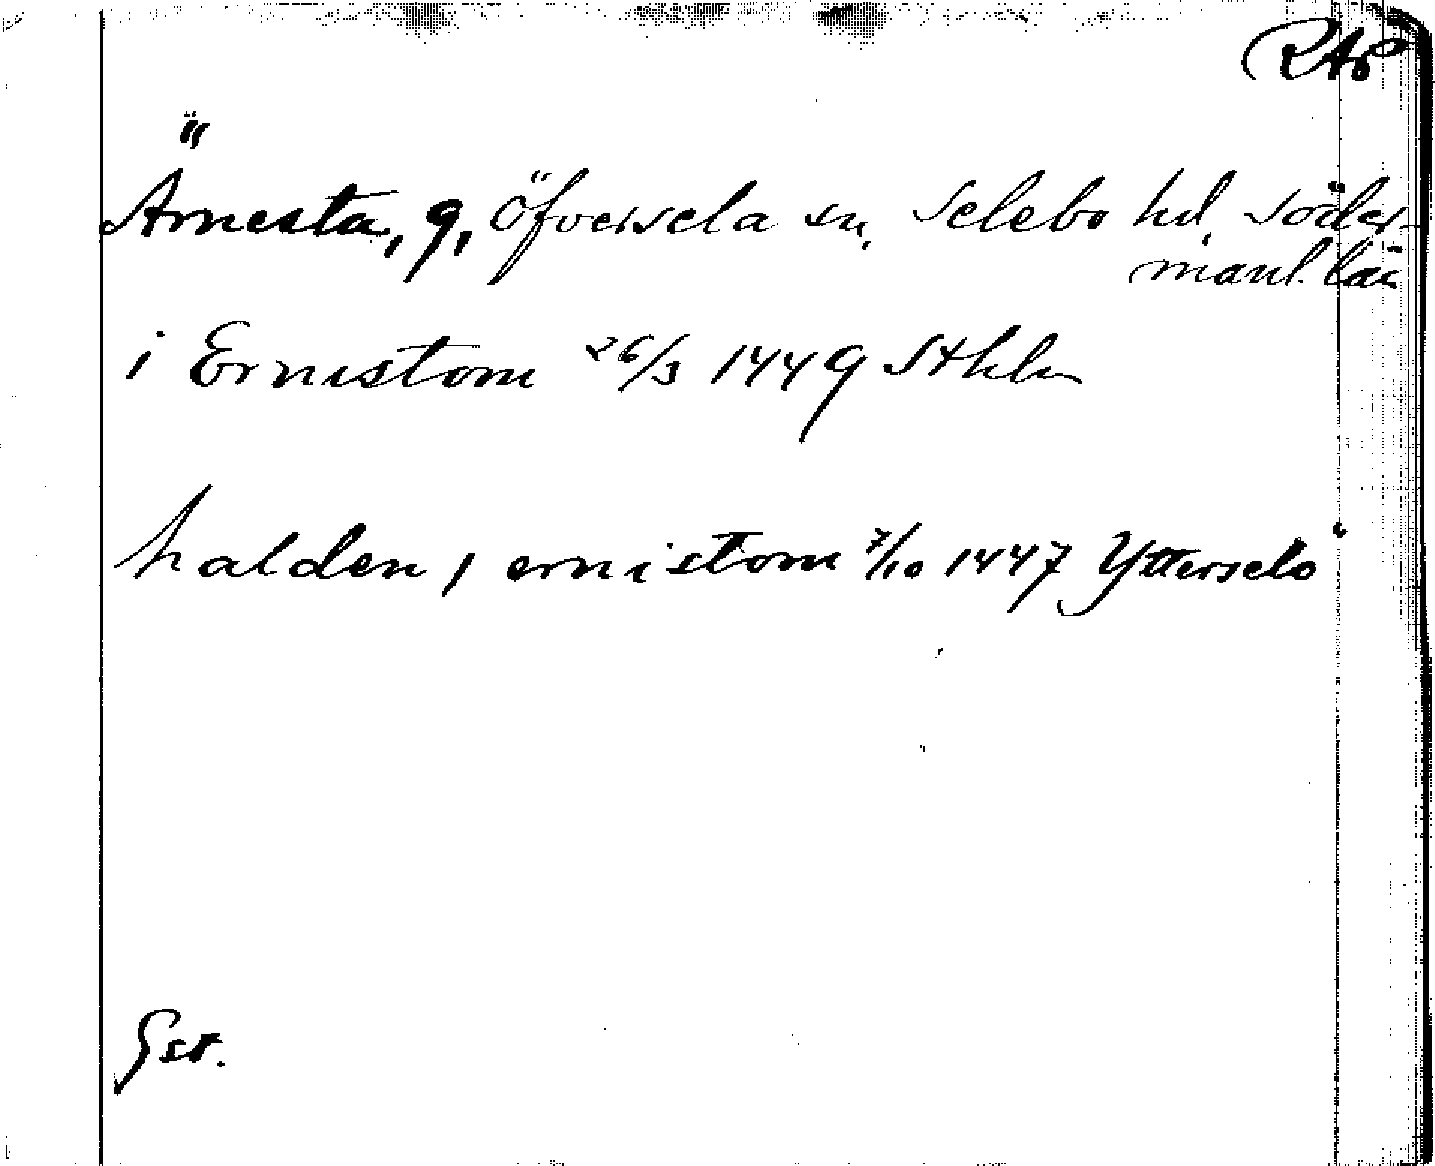 RAp
Ärnesta, g, Öfversela sn, Selebo hd, Söder-
manl. län
i Ernistom 26/3 1449 Sthlm
halden, i ernistom 7/10 1447 Ytterselö
Gsr.